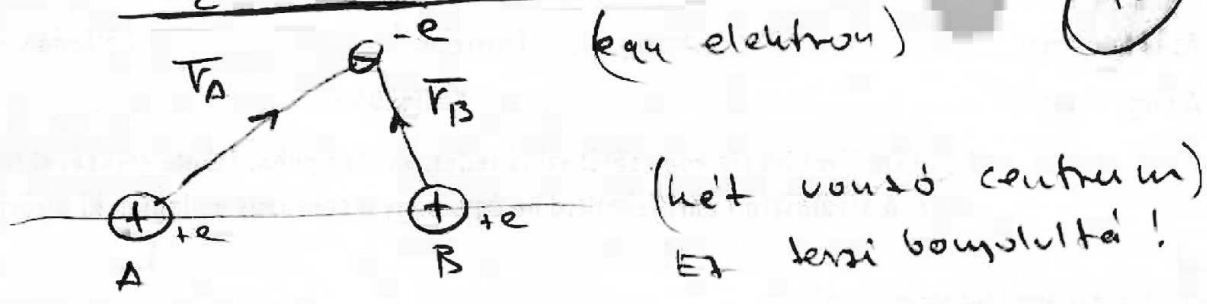 -e (egy elektron)
r̅_A r̅_B
(két vonzó centrum)
+ +e + +e
Ez teszi bonyolulttá!
A B